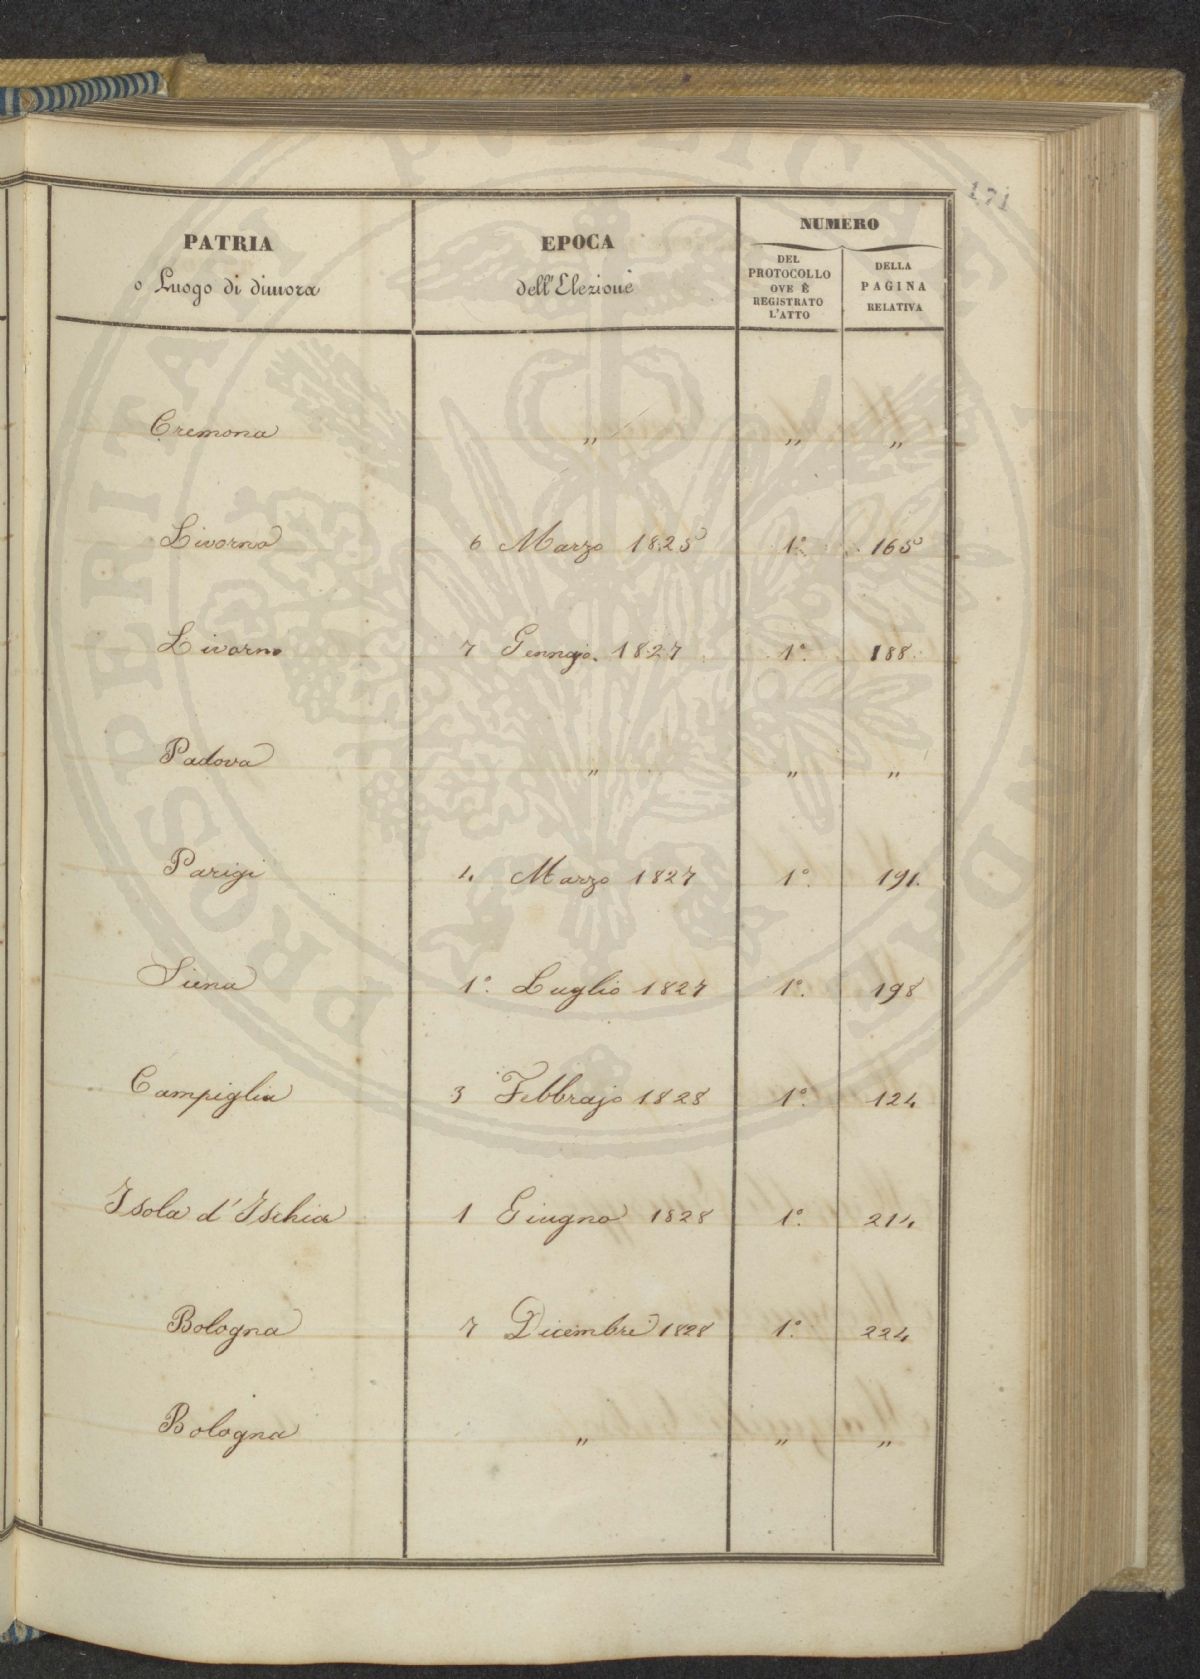 171
PATRIA
o Luogo di dimora
EPOCA
dell'Elezione
NUMERO
DEL
PROTOCOLLO
OVE È
REGISTRATO
L'ATTO
DELLA
PAGINA
RELATIVA
Cremona " " "
Livorno 6 Marzo 1825 1° 165
Livorno 7 Gennajo 1827 1° 188
Padova " " "
Parigi 4 Marzo 1827 1° 191.
Siena 1° Luglio 1827 1° 198
Campiglia 3 Febbrajo 1828 1° 124
Isola d'Ischia 1 Giugno 1828 1° 214
Bologna 7 Dicembre 1828 1° 224
Bologna " " "